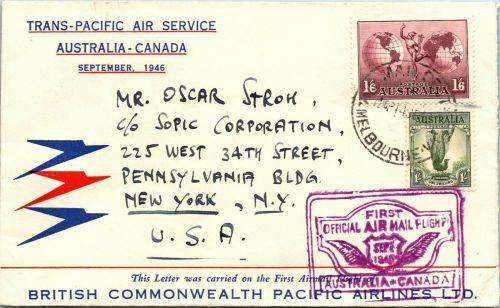 TRANS-PACIFIC AIR SERVICE
AUSTRALIA-CANADA
SEPTEMBER, 1946
1/6 POSTAGE 1/6
AUSTRALIA
MELBOURNE
AUSTRALIA
POSTAGE
1/-
MR. OSCAR STROH,
C/o SOPIC CORPORATION,
225 WEST 34TH STREET,
PENNSYLVANIA BLDG.
NEW YORK, N.Y.
U.S.A.
FIRST
OFFICIAL AIR MAIL FLIGHT
SEPT
1946
AUSTRALIA-CANADA
This Letter was carried on the First Airmail
BRITISH COMMONWEALTH PACIFIC AIRLINES LTD.